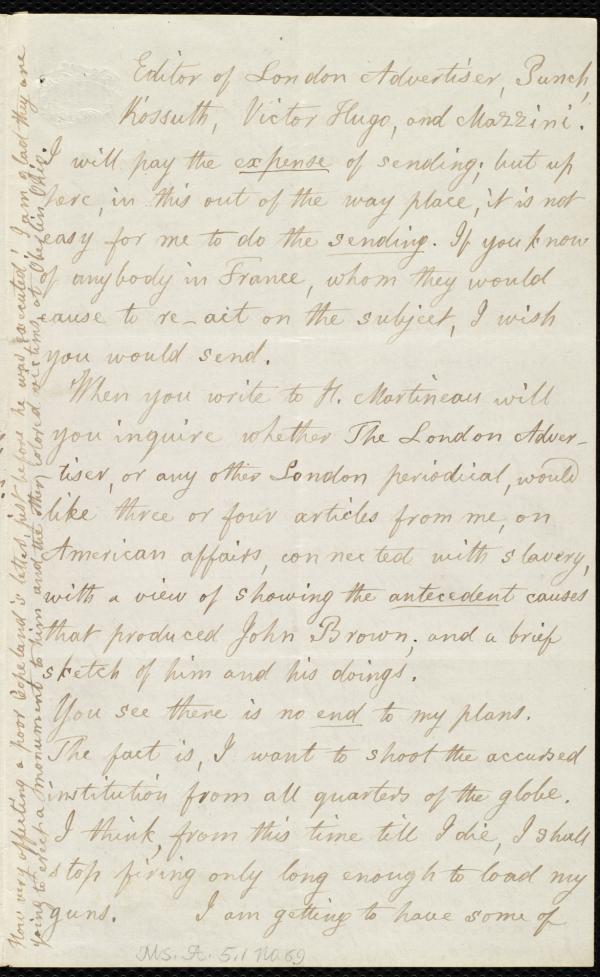 Editor of London Advertiser, Punch,
Kossuth, Victor Hugo, and Mazzini.
I will pay the expense of sending; but up
here, in this out of the way place, it is not
easy for me to do the sending. If you know
of anybody in France, whom they would
cause to re-act on the subject, I wish
you would send.
When you write to H. Martineau will
you inquire whether The London Adver-
tiser, or any other London periodical, would
like three or four articles from me, on
American affairs, connected with slavery,
with a view of showing the antecedent causes
that produced John Brown; and a brief
sketch of him and his doings.
You see there is no end to my plans.
The fact is, I want to shoot the accursed
institution from all quarters of the globe.
I think, from this time till I die, I shall
stop firing only long enough to load my
guns. I am getting to have some of
How very affecting a poor Copeland's letter, just before he was executed! I am glad they are
going to erect a monument to him and the other colored victims, at Oberlin Ohio.
Ms. A. 5.1 No. 69